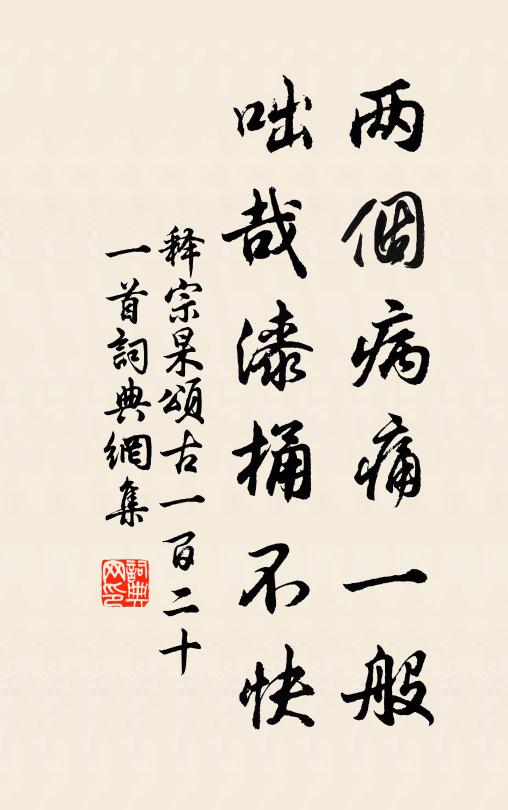 两個病痛一般
咄哉漆桶不快
释宗杲頌古一百二十
一首詞典網集
詞典
网印